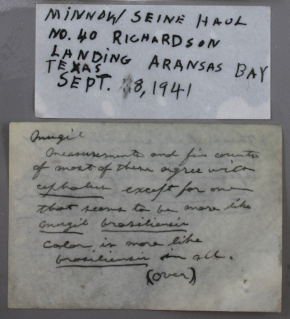 MINNOW SEINE HAUL
NO. 40 RICHARDSON
LANDING ARANSAS BAY
TEXAS
SEPT. 8, 1941
Mugil
Measurements and fin counts
of most of these agree with
cephalus except for one
that seems to be more like
Mugil brasiliensis
Color is more like
brasiliensis in all.
(over)